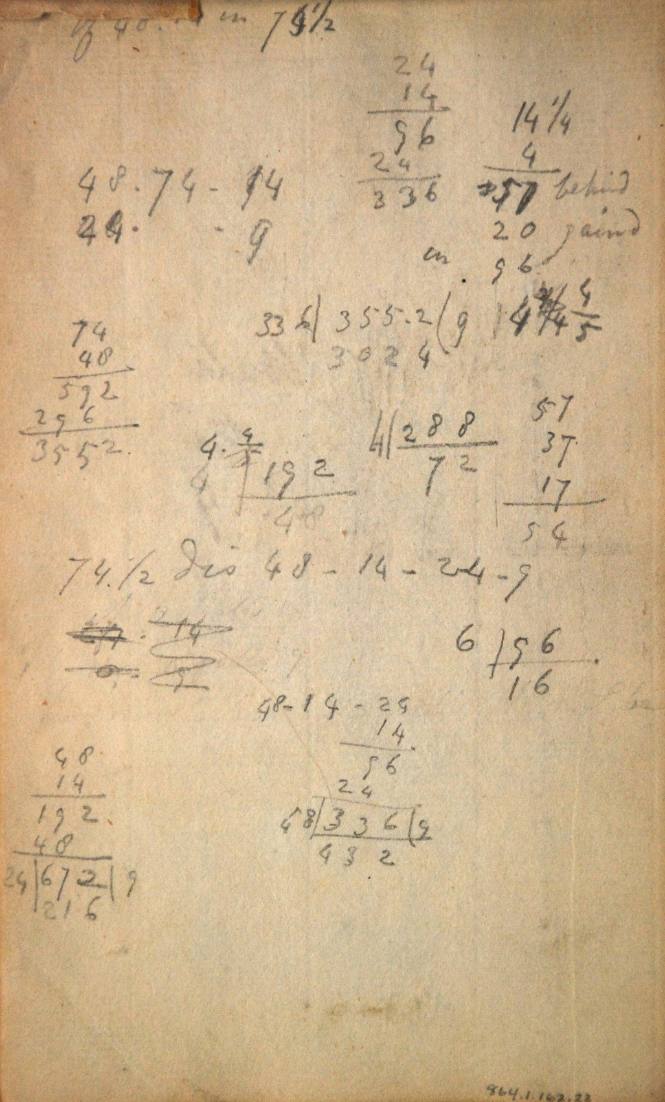 in 74 1/2
24
14
96
24
336
14 1/4
4
57 behind
20 gaind
in 96
48 . 74 - 14
24 . - 9
336 | 3552 ( 9
3024
14 4/5
74
48
592
296
3552
4
192
48
4 | 288
72
57
37
17
54
74.1/2 Dis 48 - 14 - 24 - 9
14
6 | 96
16
48 - 14 - 24
14
96
24
48 | 336 ( 9
432
48
14
192
48
24 | 672 | 9
216
864.1.162.22